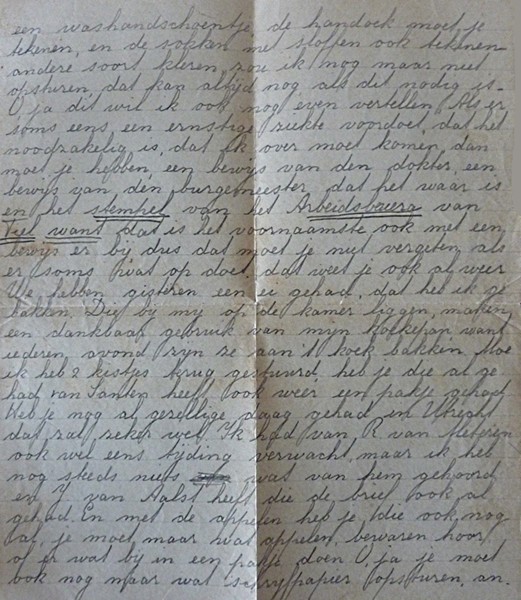 een washandschoentje, de handoek moet je
tekenen, en de sokken met stoffen ook tekenen
andere soort kleren, zou ik nog maar niet
opsturen, dat kan altijd nog als dit nodig is.
O ja dit wil ik ook nog even vertellen. Als er
soms eens, een ernstige ziekte voordoet, dat het
noodzakelijk is, dat ik over moet komen dan
moet je hebben, een bewijs van den dokter, een
bewijs van den burgemeester, dat het waar is
en het stempel van het Arbeidsbureau van
Tiel want dat is het voornaamste ook met een
bewijs er bij dus dat moet je niet vergeten als
er soms wat op doet, dat weet je ook al weer
We hebben gisteren een ei gehad, dat heb ik ge
bakken. Die by my op de kamer liggen, maken
een dankbaar gebruik van myn koekepan want
iederen avond zyn ze aan 't koek bakken. Moe
ik heb 2 kistjes krug gestuurd, heb je die al ge
had van Santen heeft ook weer een pakje gehad
Heb je nog al gezellige daag gehad in Utrecht
dat zal zeker wel. Ik had van R. van Meteren
ook wel eens tyding verwacht, maar ik heb
nog steds niets wat van hem gehoord
en J van Aalst heeft die de brief ook al
gehad. En met de appelen heb je die ook nog
al, je moet maar wat appelen, bewaren hoor,
of er wat by in een pakje doen. O, ja je moet
ook nog maar wat schryfpapier opsturen, an.